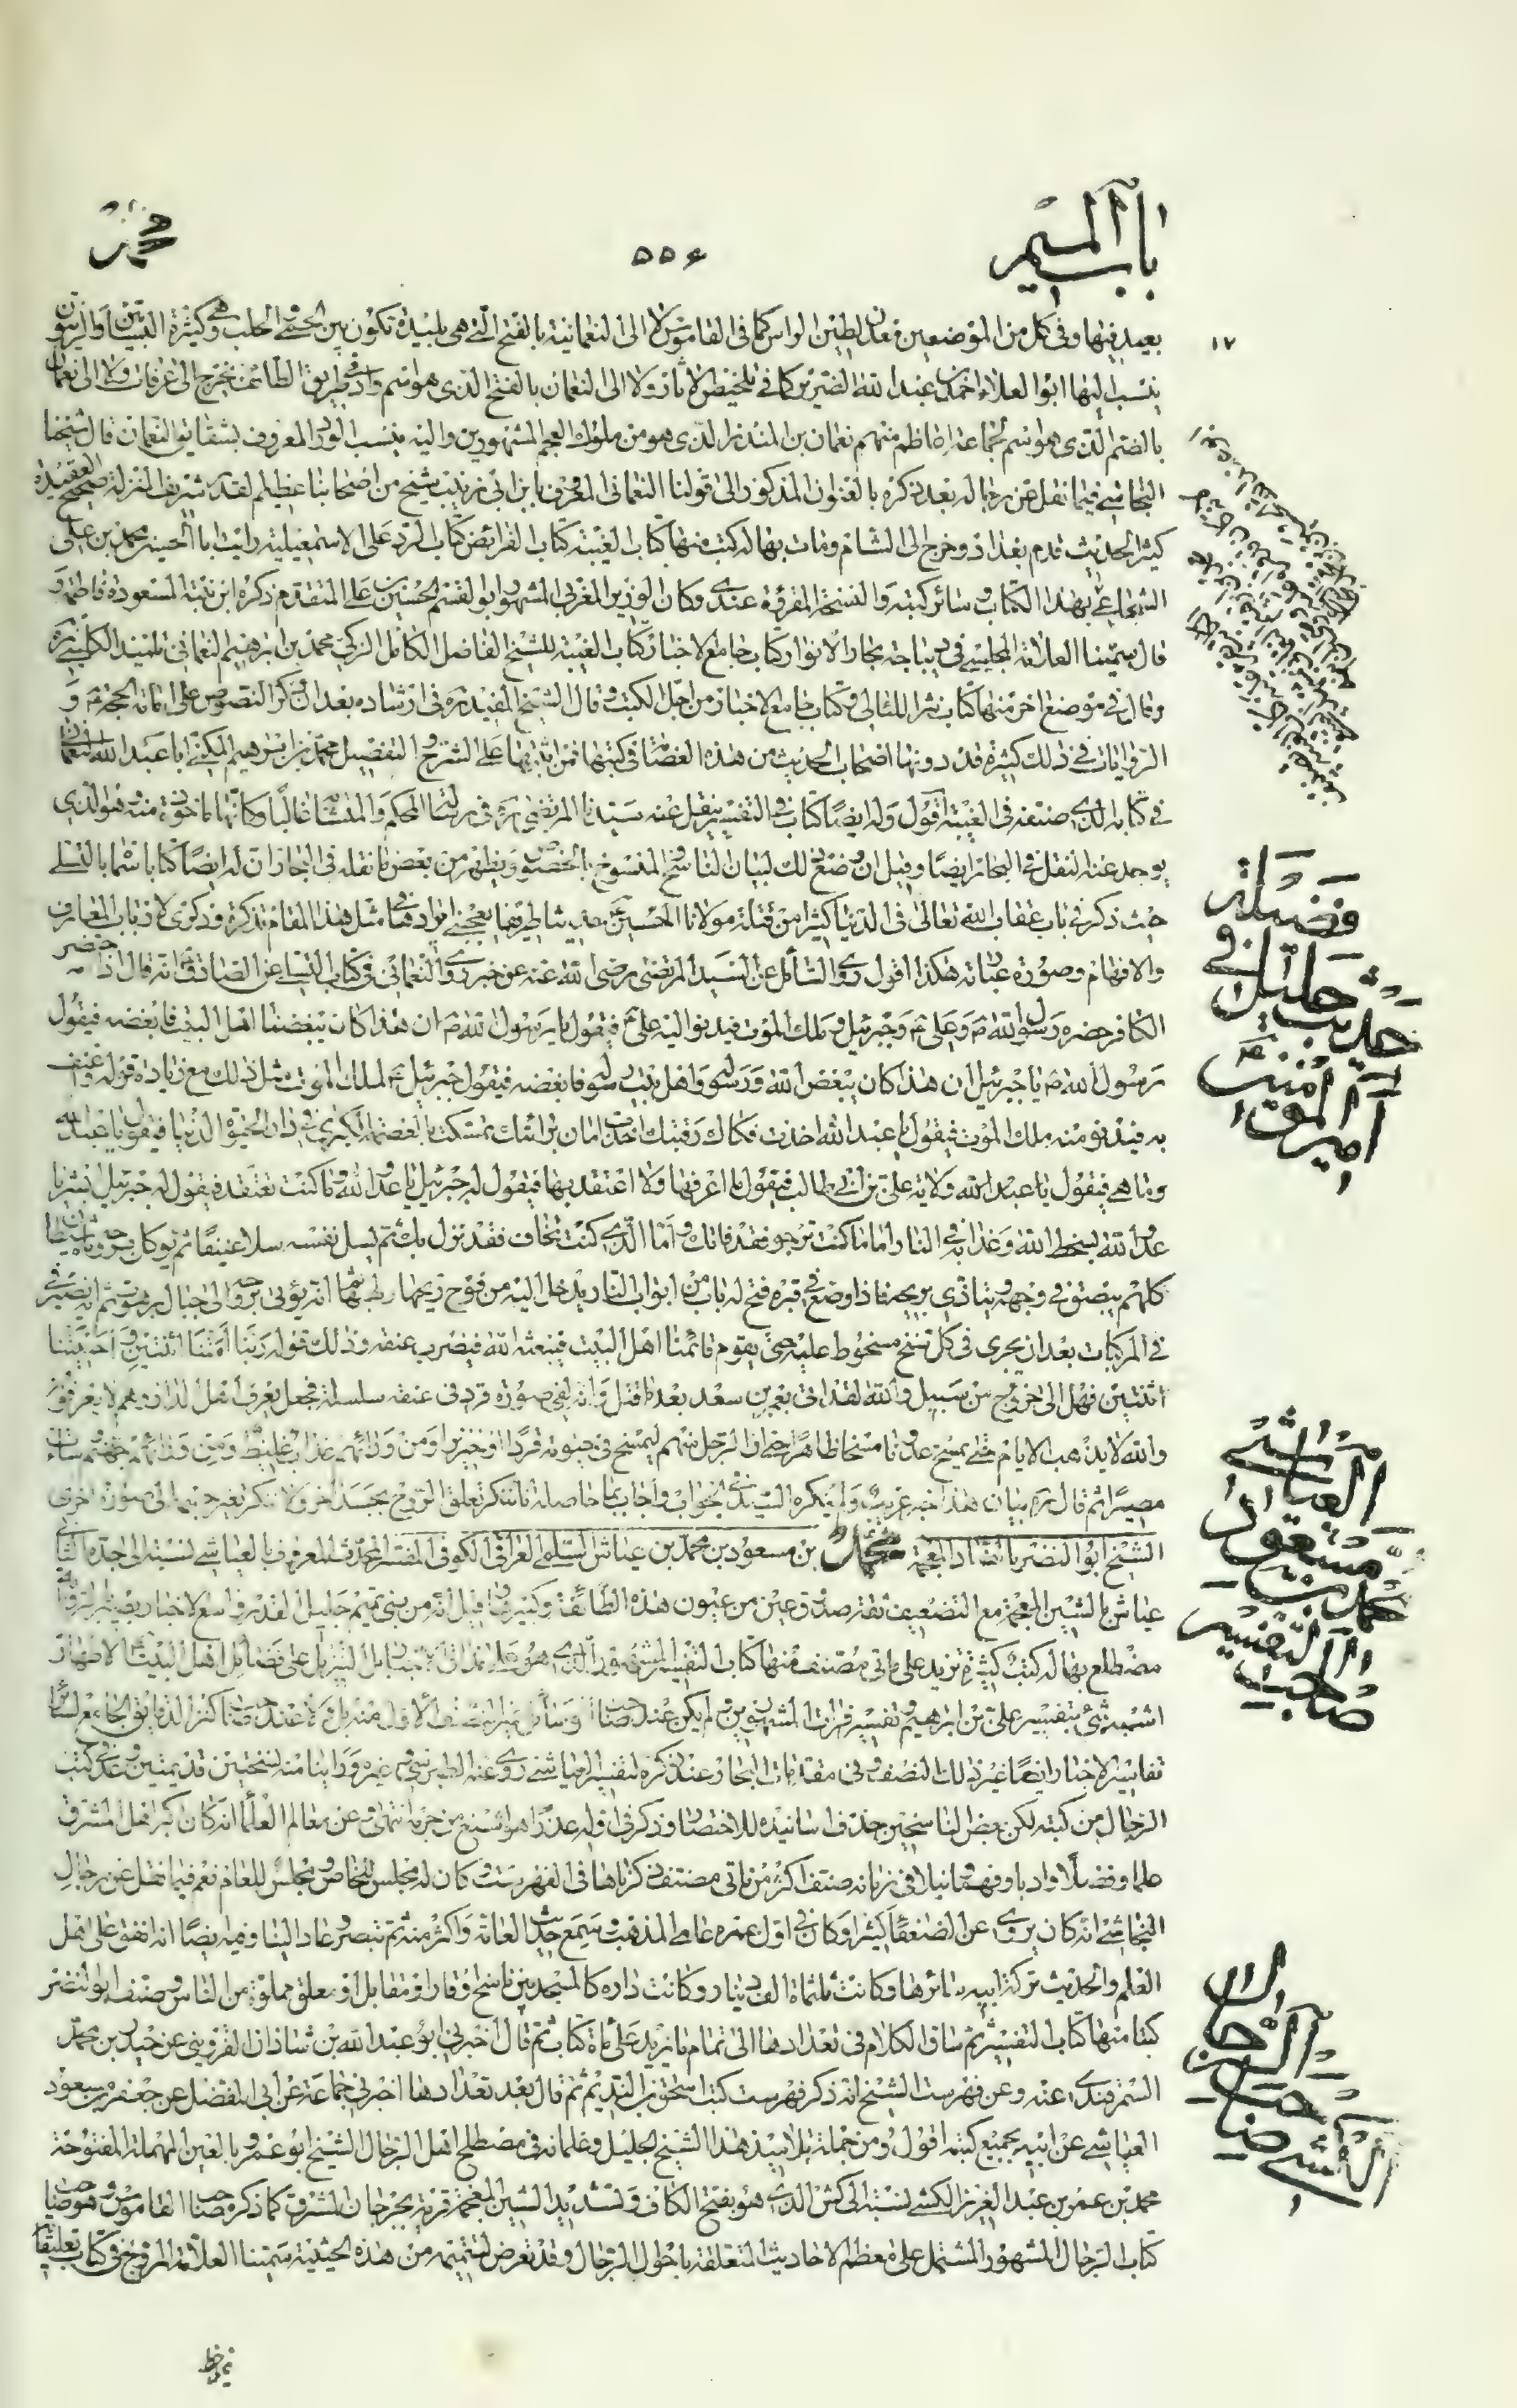 باب الميم
٥٥٤
محمد
١٧
بعيد فيها وفي كل من الموضعين فعلان لطين الراس كما في القاموس لا الى النعمانية بالفتح التي هي بليدة تكون بين الحلب وهي كثيرة التين والزيتون
ينسب اليها ابو العلاء احمد بن عبد الله الضرير كما في تلخيص الاثار ولا الى النعمان بالفتح الذي هو اسم واد في طريق الطائف يخرج الى عرفات ولا الى نعمان
بالضم الذي هو اسم جماعة اعاظم منهم نعمان بن المنذر الذي هو من ملوك العجم المشهورين واليه ينسب الورد المعروف بشقايق النعمان قال شيخنا
النجاشي فيما نقل عن رجاله بعد ذكره بالعنوان المذكور الى قولنا النعماني المعروف بابن ابي زينب شيخ من اصحابنا عظيم القدر شريف المنزلة صحيح العقيدة
كثير الحديث قدم بغداد وخرج الى الشام ومات بها له كتب منها كتاب الغيبة كتاب الفرائض كتاب الرد على الاسمعيلية رايت ابا الحسين محمد بن علي
الشجاعي بهذا الكتاب وسائر كتبه والنسخة المقروة عندي وكان الوزير المغربي المشهور ابو القسم الحسين بن علي المتقدم ذكره ابن بنته المسعودة فاطمة و
قال سمينا العلامة المجلسي في ديباجة بحار الانوار كتاب جامع الاخبار كتاب الغيبة للشيخ الفاضل الكامل الزكي محمد بن ابرهيم النعماني تلميذ الكليني ره
وقال في موضع اخر منها كتاب نثر اللئالي وكتاب جامع الاخبار من اجل الكتب وقال الشيخ المفيد ره في ارشاده بعد ان ذكر النصوص على امامة الحجة ع و
الروايات في ذلك كثيرة قد دونها اصحاب الحديث من هذه العصابة في كتبها فمن اثبتها على الشرح والتفصيل محمد بن ابرهيم المكنى ابا عبد الله النعماني
في كتابه الذي صنفه في الغيبة اقول وله ايضا كتاب في التفسير ينقل عنه سيدنا المرتضى ره في رسالته المحكم والمتشابه غالبا وكانها ماخوذة منه وهو الذي
يوجد عنه النقل في البحار ايضا وقيل ان وضع ذلك لبيان الناسخ والمنسوخ بالخصوص ويظهر من بعض ما نقله في البحار ان له ايضا كتابا سماه بالتسلي
حيث ذكر في باب عقاب الله تعالى في الدنيا كثيرا من قتلة مولانا الحسين ع حديثا طريفا يعجبني ايراده في مثل هذا المقام تذكرة وذكرى لارباب المعارف
والافهام وصورة عبارته هكذا اقول روى السائل عن السيد المرتضى رضي الله عنه عن خبر روى النعماني في كتاب التسلي عن الصادق ع انه قال اذا حضر
الكافر حضره رسول الله ص وعلي ع وجبرئيل وملك الموت فيدنو اليه علي ع فيقول يا رسول الله ص ان هذا كان يبغضنا اهل البيت فابغضه فيقول
رسول الله ص يا جبرئيل ان هذا كان يبغض الله ورسوله واهل بيت رسوله فابغضه فيقول جبرئيل ع لملك الموت مثل ذلك مع زيادة قوله واعنف
به فيدنو منه ملك الموت فيقول يا عبد الله اخذت فكاك رقبتك اخذت امان براءتك تمسكت بالعصمة الكبرى في دار الحيوة الدنيا فيقول يا عبد الله
وما هي فيقول يا عبد الله ولاية علي بن ابي طالب فيقول ما اعرفها ولا اعتقد بها فيقول له جبرئيل يا عدو الله وما كنت تعتقد فيقول له جبرئيل ابشر يا
عدو الله بسخط الله وعذابه في النار اما ما كنت ترجو فقد فاتك واما الذي كنت تخاف فقد نزل بك ثم يسل نفسه سلا عنيفا ثم يوكل بروحه مائة شيطان
كلهم يبصق في وجهه ويتاذى بريحه فاذا وضع في قبره فتح له باب من ابواب النار يدخل اليه من فوح ريحها ولهبها ثم انه يؤتى بروحه الى جبال برهوت ثم انه يصير في
في المركبات بعد ان يجري في كل سنخ مسخوط عليه حتى يقوم قائمنا اهل البيت فيبعثه الله فيضرب عنقه وذلك قوله ربنا امتنا اثنتين واحييتنا
اثنتين فهل الى خروج من سبيل والله لقد اتي بعمر بن سعد بعد ما قتل وانه لفي صورة قرد في عنقه سلسلة فجعل يعرف اهل الدار وهم لا يعرفونه
والله لا يذهب الايام حتى يمسخ عدونا مسخا ظاهرا حتى ان الرجل منهم ليمسخ في حيوته قردا او خنزيرا ومن ورائهم عذاب غليظ ومن ورائهم جهنم وساءت
مصيرا ثم قال ره بيان هذا خبر غريب ولم ينكره السيد في الجواب واجاب بما حاصله انا ننكر تعلق الروح بجسد اخر ولا ننكر تغير جسمه الى صورة اخرى
الشيخ ابو النضر بالضاد المعجمة محمد بن مسعود بن محمد بن عياش السلمي العراقي الكوفي المفسر المحدث المعروف بالعياشي نسبته الى جده الثاني
عياش بالشين المعجمة مع التضعيف ثقة صدوق عين من عيون هذه الطائفة وكبيرها قيل انه من بني تميم جليل القدر واسع الاخبار بصير بالرواية
مضطلع بها له كتب كثيرة تزيد على مائتي مصنف منها كتاب التفسير المشهور الذي هو على مذاق تنزيل على فضائل اهل البيت الاطهار
اشبه شئ بتفسير علي بن ابرهيم وتفسير فرات المشهورين ولم يكن عند صاحب الوسائل غير النصف الاول منه بل ولا عند صاحب كنز الدقايق الجامع لسائر
تفاسير الاخبار ايضا غير ذلك النصف وفي مقدمات البحار عند ذكره لتفسير العياشي روى عنه الطبرسي وغيره وراينا منه نسختين قديمتين وعد في كتب
الرجال من كتبه لكن بعض الناسخين حذف اسانيده للاختصار وذكر في اوله عذرا هو اشنع من جرمه انتهى وعن معالم العلماء انه كان اكبر اهل المشرق
علما وفضلا وادبا وفهما ونبلا في زمانه صنف اكثر من مائتي مصنف ذكرناها في الفهرست وكان له مجلس للخاص ومجلس للعام نعم فيما نقل عن رجال
النجاشي انه كان يروي عن الضعفا كثيرا وكان في اول عمره عامي المذهب وسمع حديث العامة واكثر منه ثم تبصر وعاد الينا وفيه ايضا انه انفق على اهل
العلم والحديث تركة ابيه سائرها وكانت ثلثمائة الف دينار وكانت داره كالمسجد بين ناسخ وقار او مقابل او معلق مملوة من الناس وصنف ابو النضر
كتبا منها كتاب التفسير ثم ساق الكلام في تعدادها الى تمام ما يزيد على مأة كتاب ثم قال اخبرني ابو عبد الله بن شاذان القزويني عن حيدر بن محمد
السمرقندي عنه وعن فهرست الشيخ انه ذكر فهرست كتبه اسحق بن النديم ثم قال بعد تعدادها اخبرني جماعة عن ابي المفضل عن جعفر بن مسعود
العياشي عن ابيه بجميع كتبه اقول ومن جملة تلاميذ هذا الشيخ الجليل وغلمانه في مصطلح اهل الرجال الشيخ ابو عمرو بالعين المهملة المفتوحة
محمد بن عمر بن عبد العزيز الكشي نسبته الى كش الذي هو بفتح الكاف وتشديد الشين المعجمة قرية بجرجان المشرق كما ذكره صاحب القاموس وهو صاحب
كتاب الرجال المشهور المشتمل على معظم الاحاديث المتعلقة باحوال الرجال وقد تعرض لتتميمه من هذه الحيثية سمينا العلامة المروج في كتاب تعليقاته
وفضيلة
في
حديث جليل
امير المؤمنين ع
العياشي
مسعود
محمد بن
التفسير
صاحب
الرجال
صاحب
الكشي